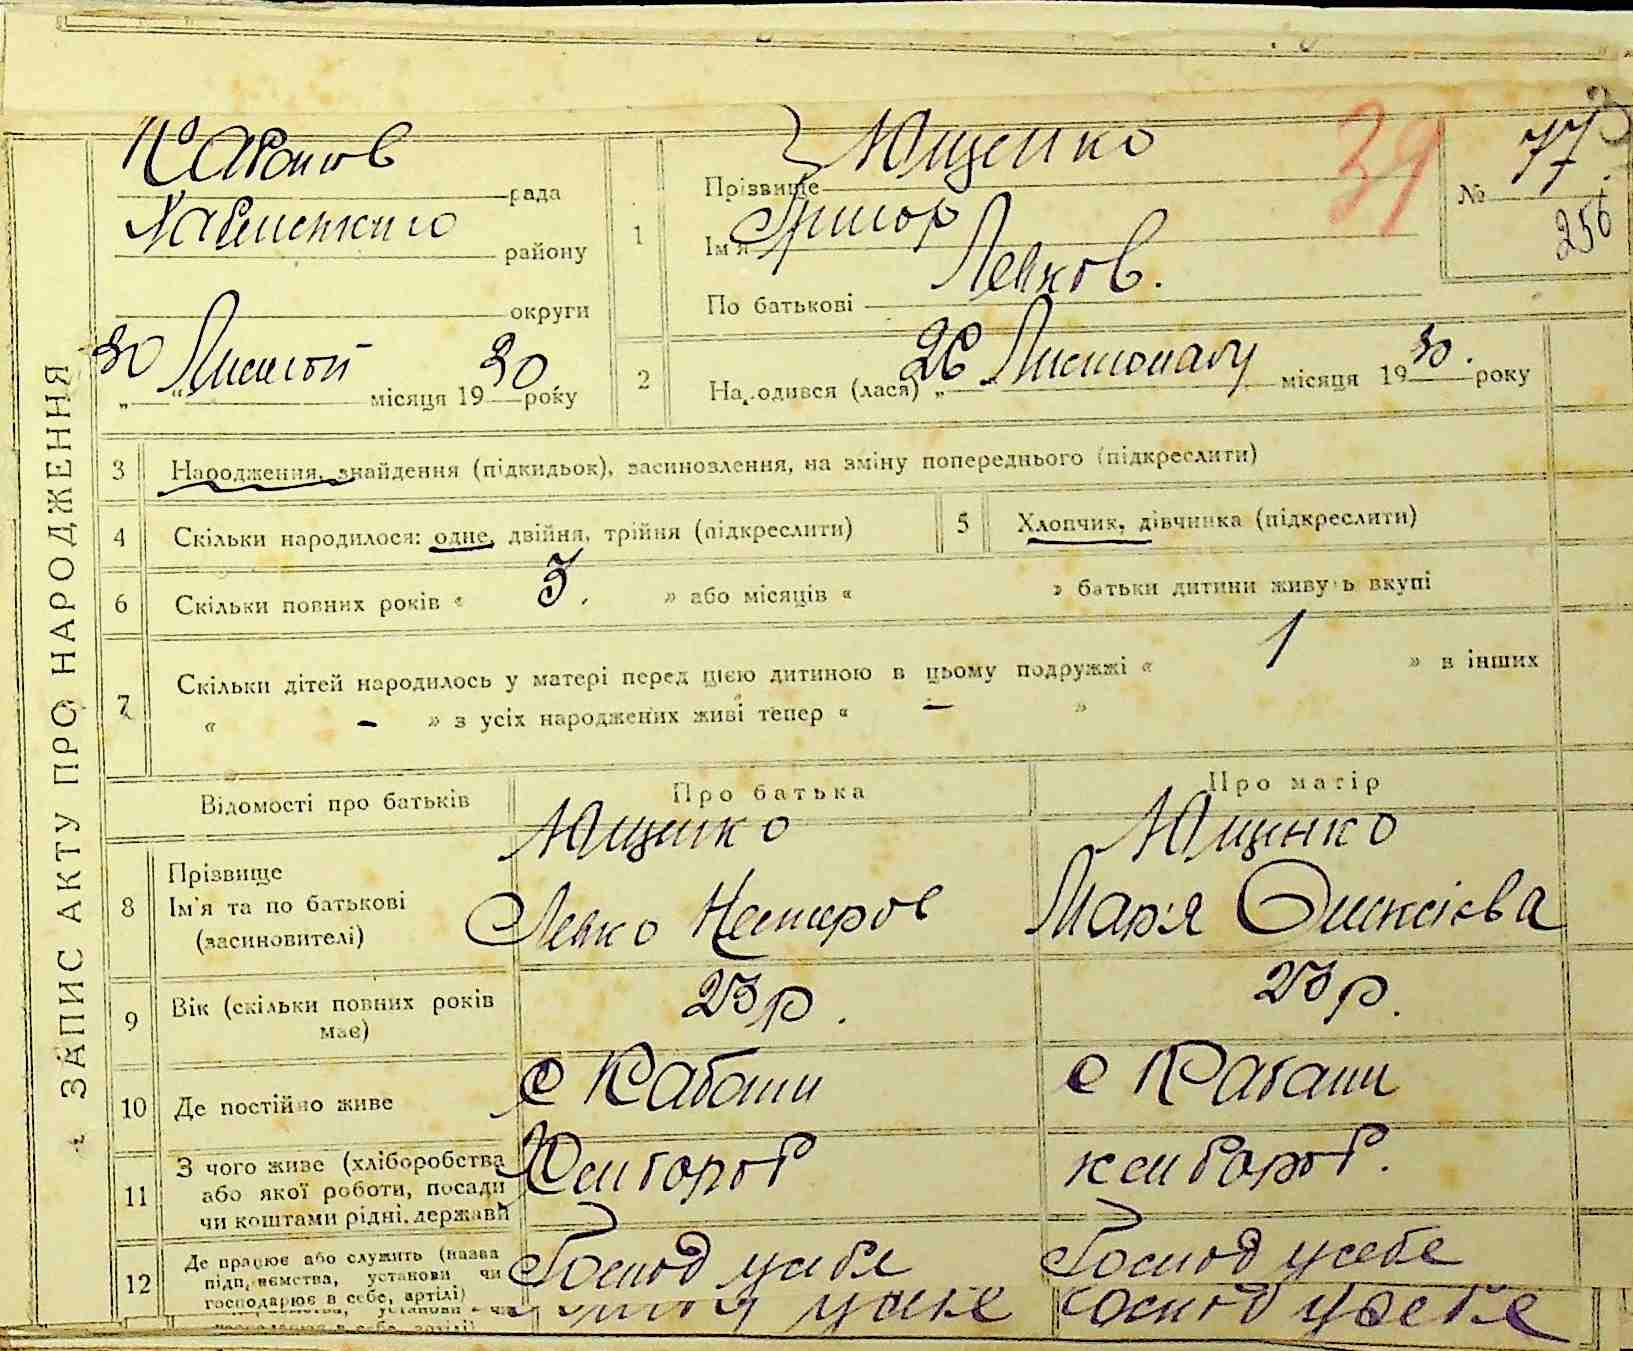 ЗАПИС АКТУ ПРО НАРОДЖЕННЯ
рада
району
округи
30 Листоп 1930 року місяця
1
Прізвище Ющенко
Ім'я Григор
По батькові Левков.
39
№ 77
256
2 Народився (лася) „26 Листопаду місяця 1930. року
3 Народження, знайдення (підкидьок), засиновлення, на зміну попереднього (підкреслити)
4 Скільки народилося: одне, двійня, трійня (підкреслити)
5 Хлопчик, дівчинка (підкреслити)
6 Скільки повних років « 3. » або місяців « » батьки дитини живуть вкупі
7 Скільки дітей народилось у матері перед цією дитиною в цьому подружжі « 1 » в інших
« – » з усіх народжених живі тепер « – »
Відомості про батьків Про батька Про матір
8 Прізвище
Ім'я та по батькові
(засиновителі)
Ющенко
Левко Нестиров
Ющинко
Марія Олексієва
9 Вік (скільки повних років має) 23 р. 23 р.
10 Де постійно живе с Кабани с Кабани
11 З чого живе (хліборобства
або якої роботи, посади
чи коштами рідні, держави
Хлібороб хлібороб.
12 Де працює або служить (назва
підприємства, установи чи
господарює в себе, артілі)
Господ у себе Господ у себе
Господ у себе